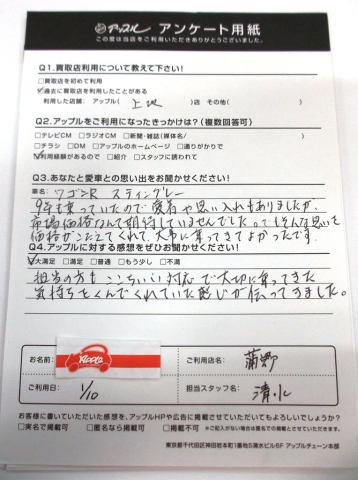 アップル アンケート用紙
この度は当店をご利用いただきありがとうございました。
Q1.買取店利用について教えて下さい!
□買取を初めて利用
☑過去に買取を利用したことがある
利用した店舗: アップル( 上地 )店 その他( )
Q2.アップルをご利用になったきっかけは?(複数回答可)
□テレビCM □ラジオCM □新聞・雑誌(媒体名/ )
□チラシ □DM □アップルのホームページ □通りがかりで
☑利用経験があるので □紹介 □スタッフに誘われて
Q3.あなたと愛車との思い出をお聞かせください!
車名: ワゴンR スティングレー
9年も乗っていたので愛着や思い入れもありましたが、
市場価格なんて期待していませんでした。でもそんな思いを
価格がこたえてくれて、大事に乗ってきてよかったです。
Q4.アップルに対する感想をぜひお聞かせください!
☑大満足 □満足 □普通 □もう少し □不満
担当の方も ここちいい対応で大切に乗ってきた
気持ちをくんでくれていた感じが伝ってきました。
お名前:
Apple
ご利用店名: 蒲郡
ご利用日: 1/10
担当スタッフ名: 清水
お客様に書いていただいた感想を、アップルHPや広告に掲載させていただいてもよろしいでしょうか?
□実名で掲載可 □匿名なら掲載可 □掲載不可 ※ご記入がない場合は匿名での掲載とさせていただきます。
東京都千代田区神田岩本町1番地5清水ビル6F アップルチェーン本部